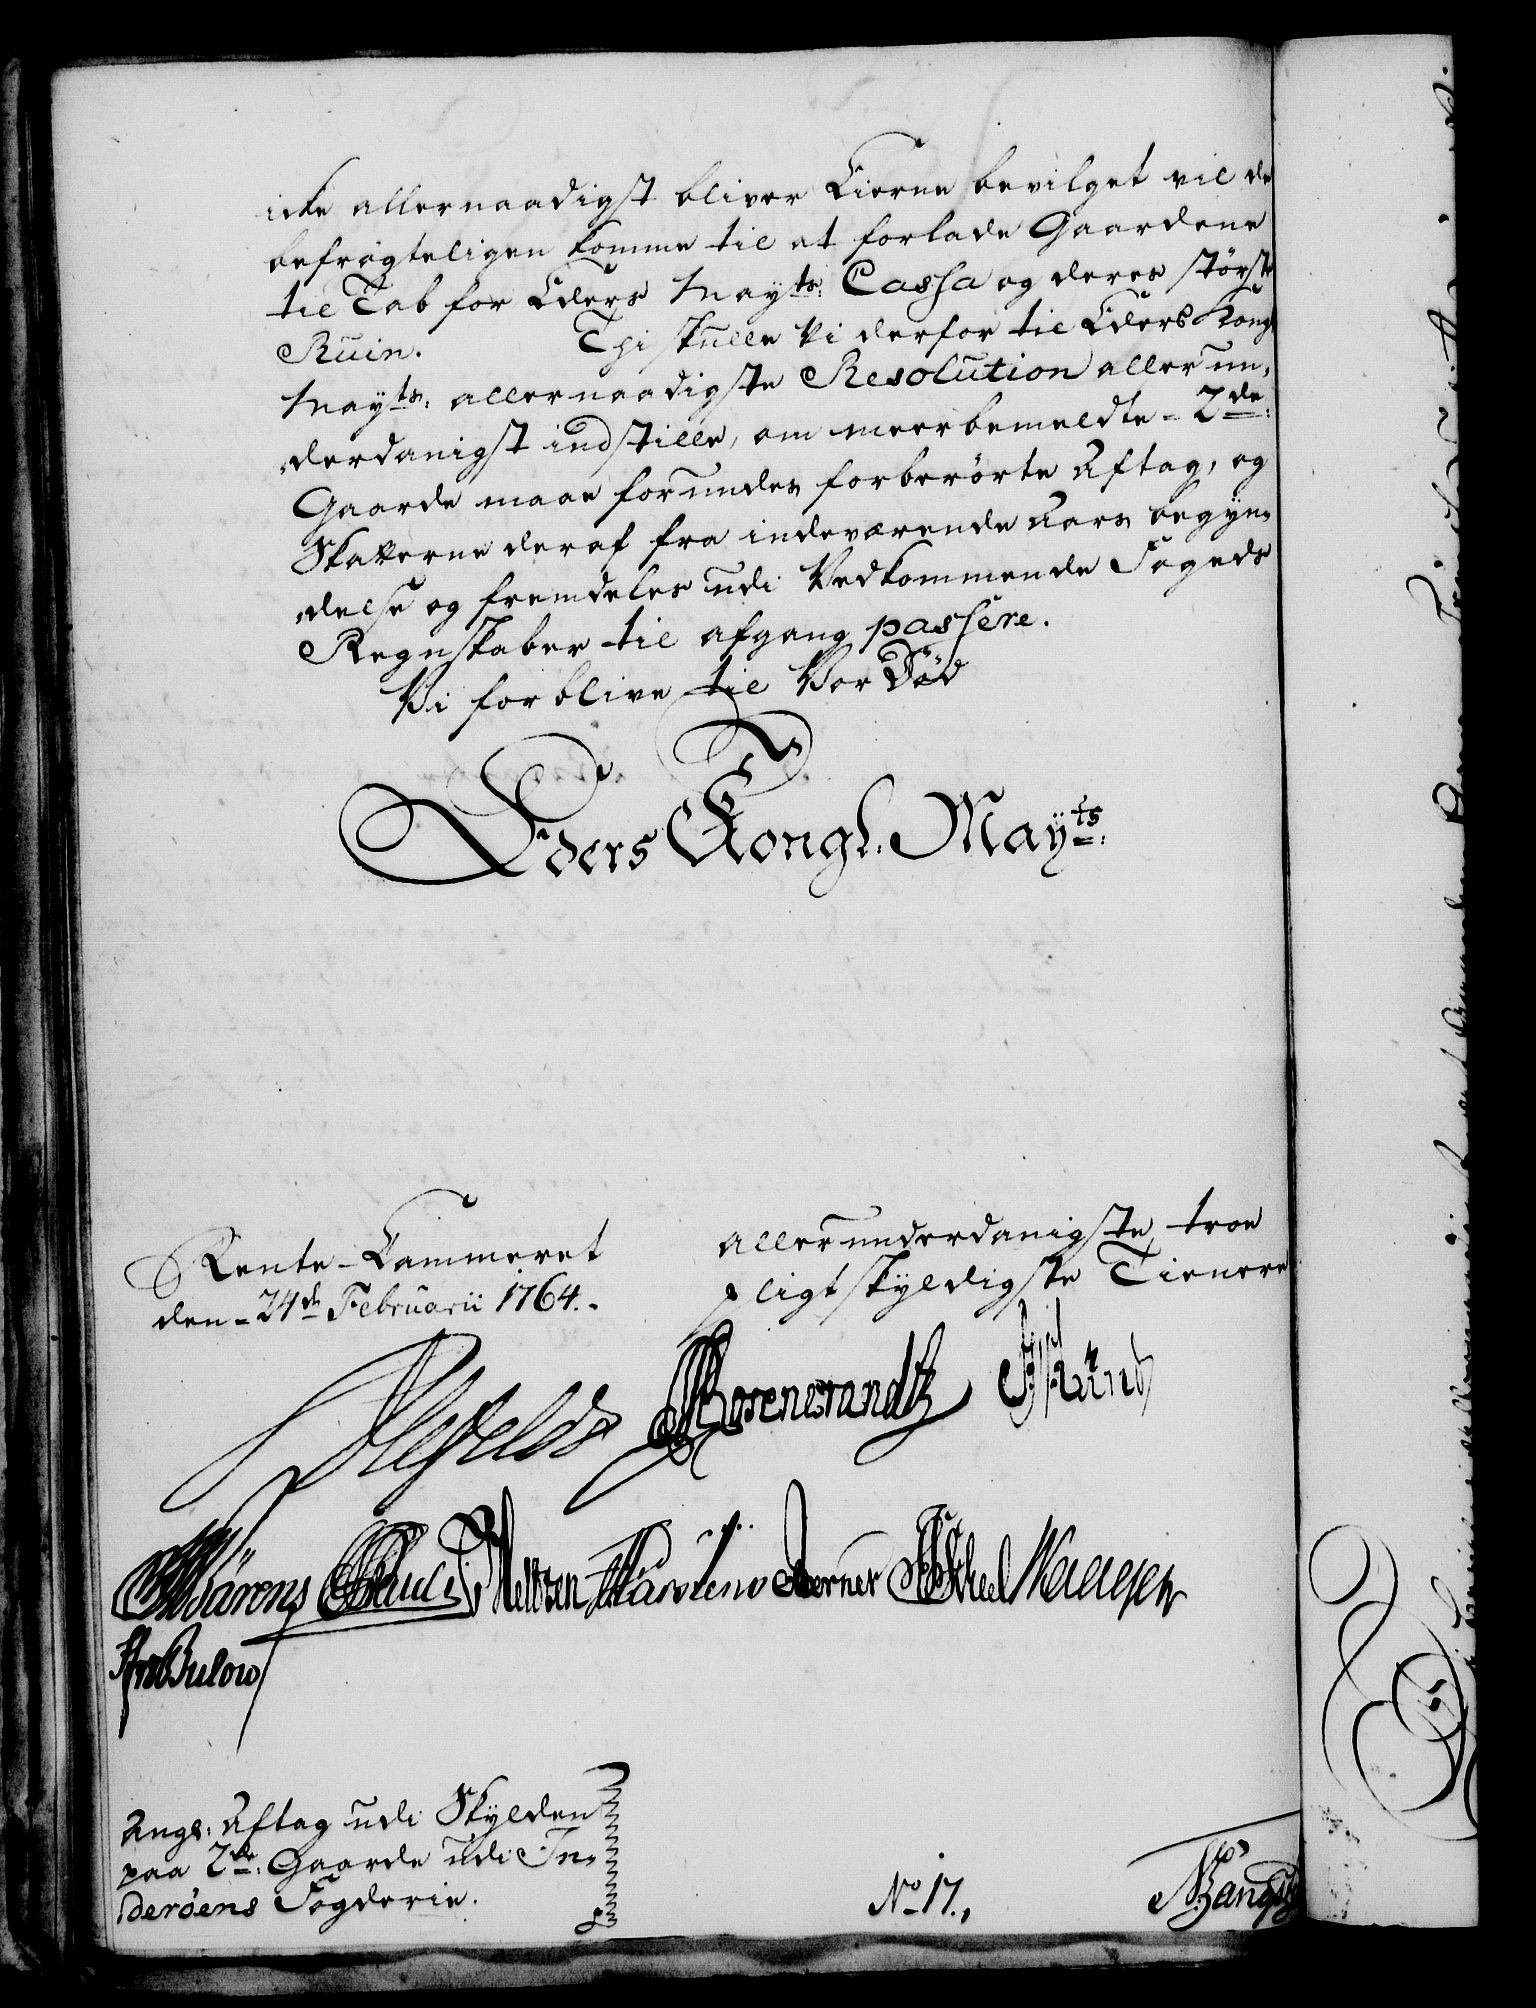 icke allernaadigst bliver Eierne bevilget vil de
befrøgteligen komme til at forlade Gaardene
til Tab for Eders Mayts: Cassa og deres største
Ruin. Thi skulle Vi derfor til Eders Kongl
Mayts: allernaadigste Resolution allerun,
,derdanigst indstille, om meerbemeldte 2de:
Gaarde maae forundes forberørte Aftag, og
Skatterne deraf fra indeværende Aars begyn,
,delse og fremdeles udi Vedkommende Fogeds
Regnskaber til afgang passere.
Vi forblive til Vor Død
Eders Kongl. Mayts:
Rente-Cammeret
den 24de Februarii 1764.
allerunderdanigste, troe
pligtskyldigste Tienere
Alefeldt Rosencrandtz
Pauli Neltzen Berner
Bulow
Angl: Aftag udi Skylden
paa 2de: Gaarde udi In,
,derøens Fogderie.
No 17.,